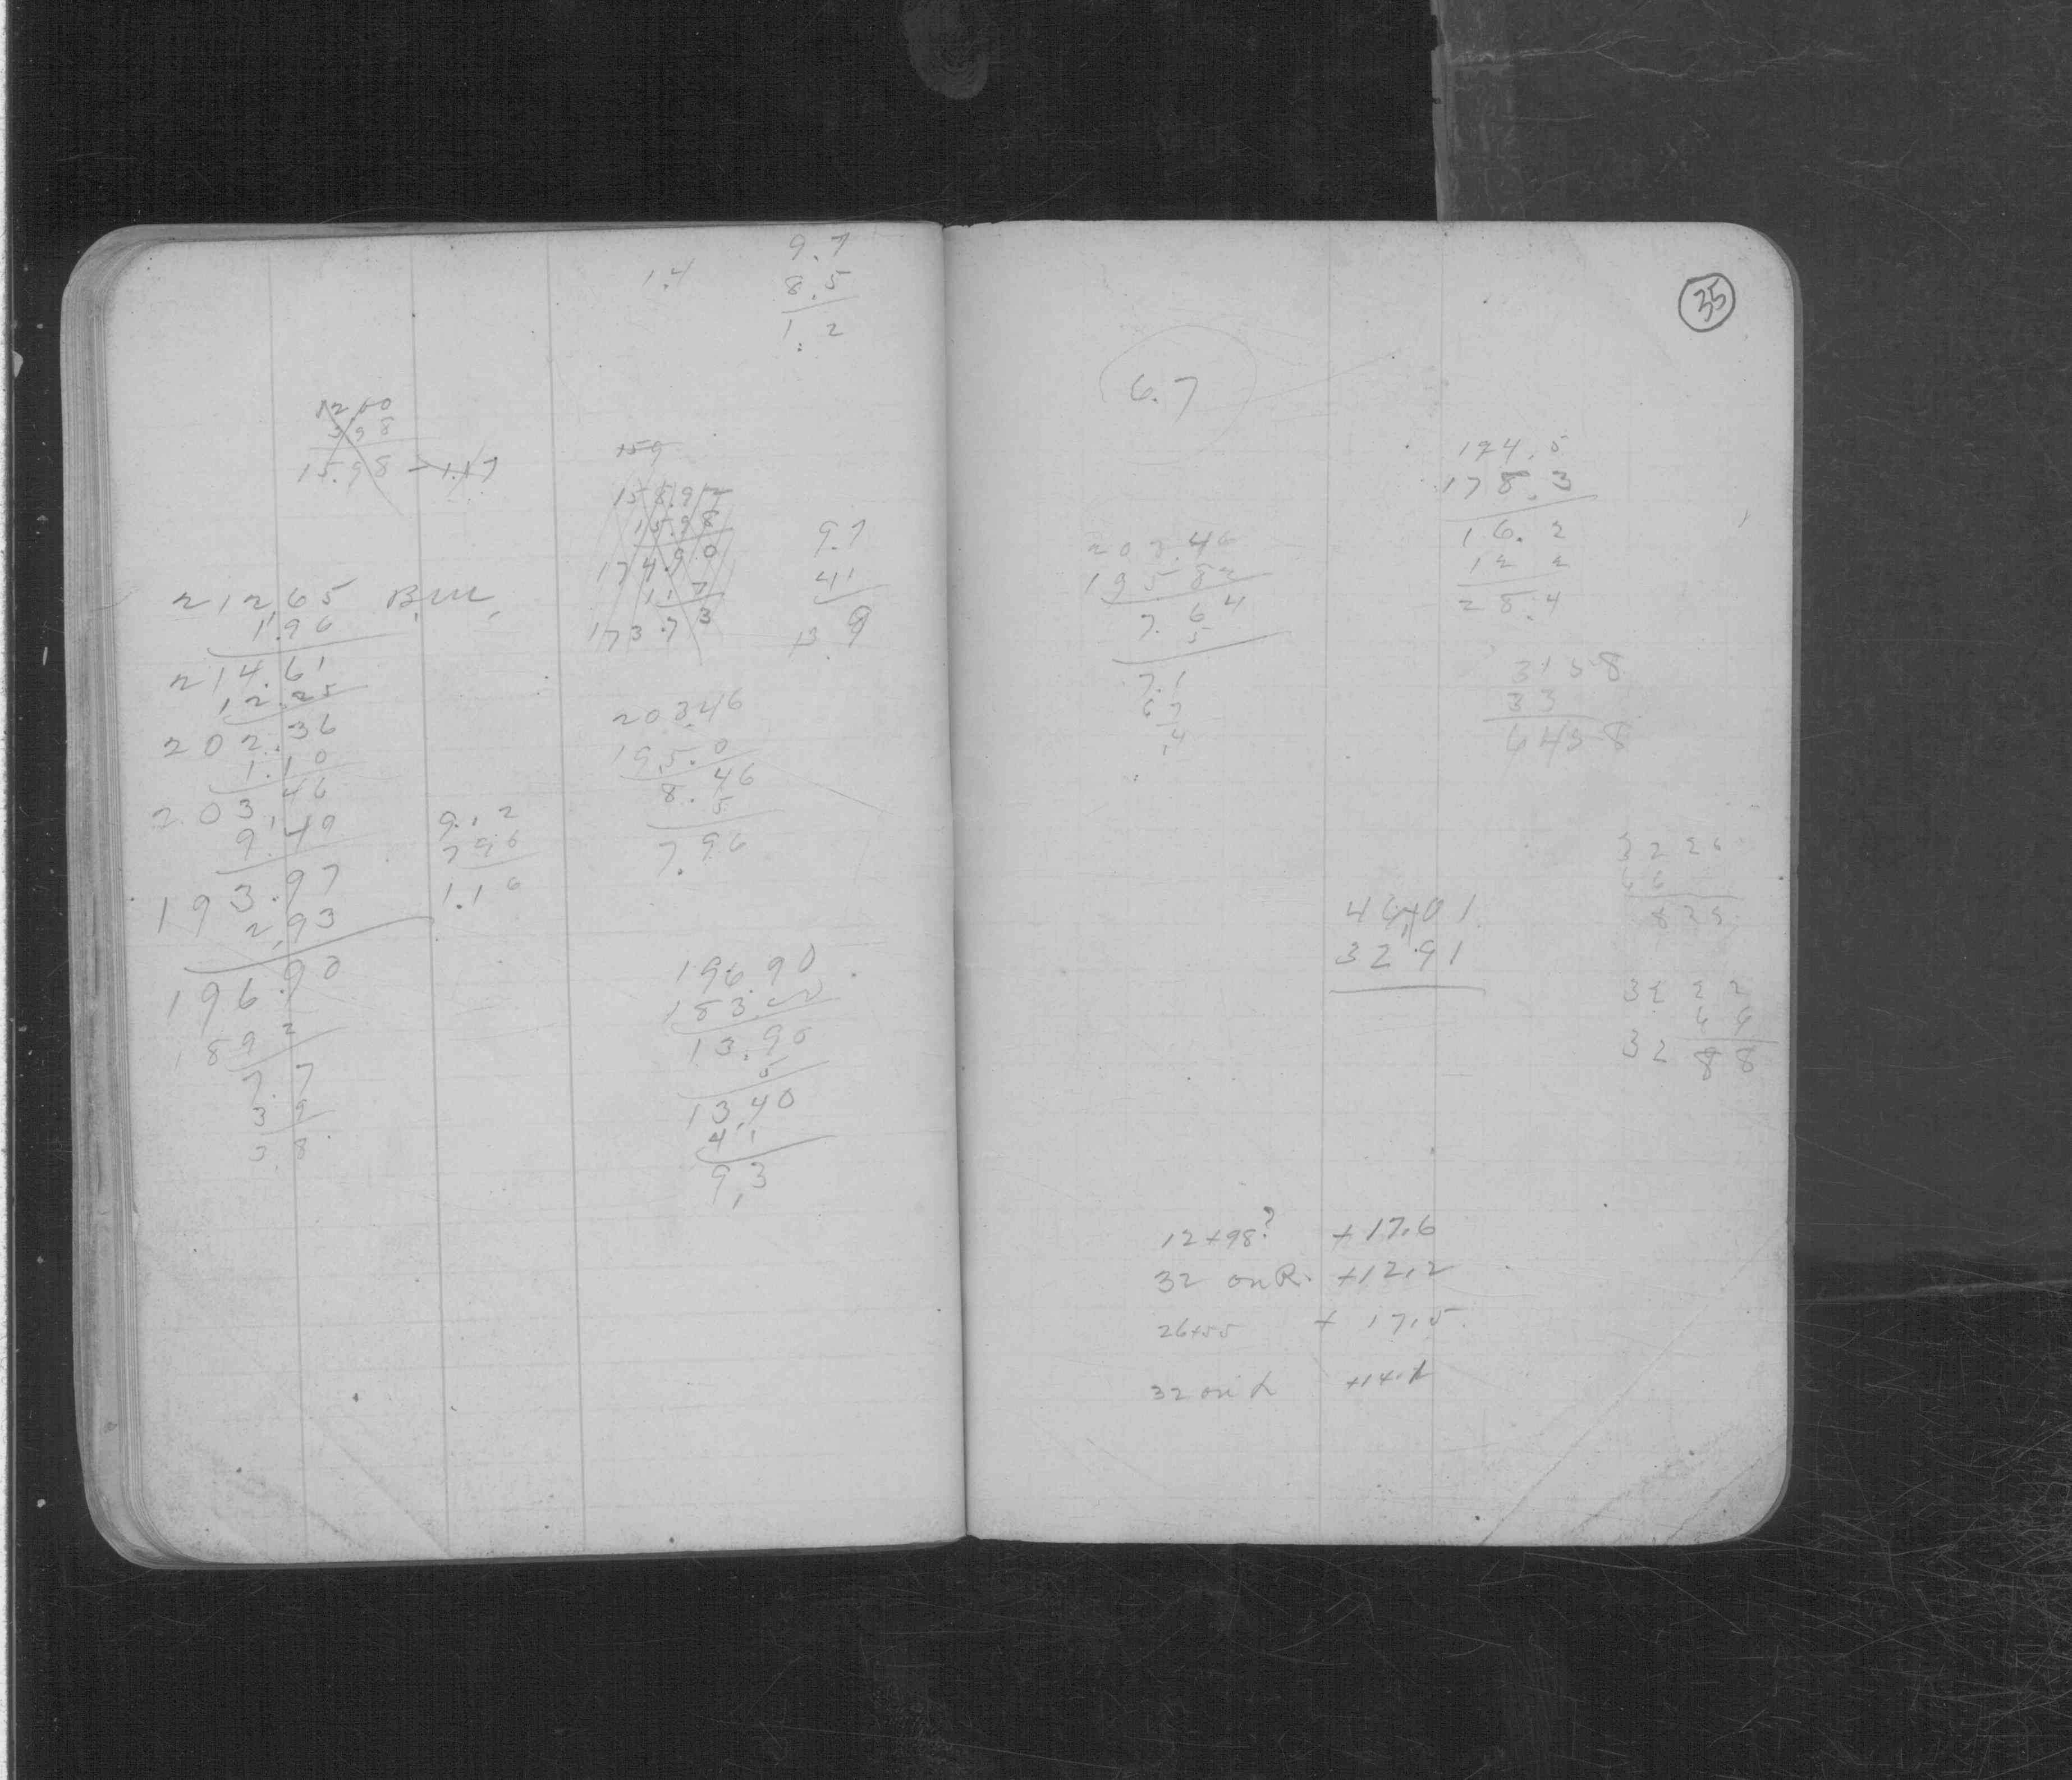 1.4
9.7
8.5
1.2
12.00
3 98
15.98 - 1.17
159
158.92
15.98
174.90
1 1 7
173.73
9.7
41
13.8
212.65 B.M.
1.96
214.61
12.25
202.36
1.10
203.46
9.49
193.97
2.93
196.90
189 2
7.7
3 9
3.8
9.12
7 96
1.16
203.46
195.0
8.46
5
7.96
196.90
183.00
13.90
5
13.40
4 1
9.3
35
6.7
194.5
178.3
16.2
12 2
28.4
203.46
195 82
7.64
5
7.1
6 7
.4
3158
33
6458
32 26
66
825
46+01
32.91
32 22
66
32 88
12+98? +17.6
32 on R. +12.2
26+55 + 17.5
32 on L +14.1